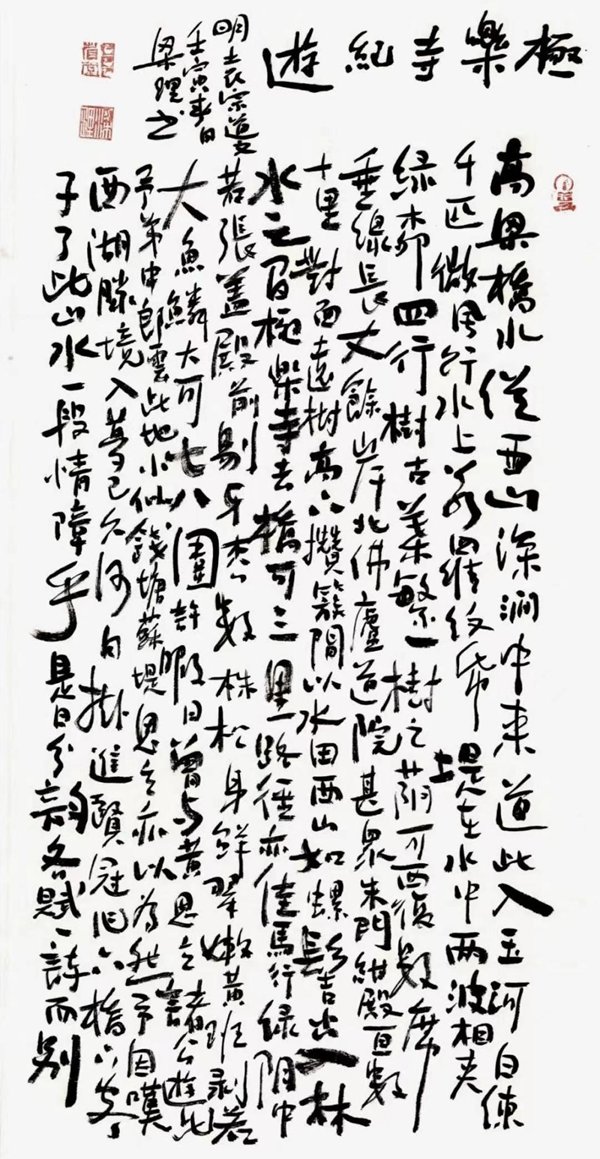 極樂寺紀遊
高梁橋水從西山深澗中来道此入玉河白練
千匹微風行水上若羅紋紙堤在水中兩波相夾
綠楊四行樹古葉繁一樹之蔭可覆數席
垂線長丈餘岸北佛廬道院甚眾朱門紺殿亘數
十里對面遠樹高下攢簇間以水田西山如螺髻出入林
水之間極樂寺去橋可三里路徑亦佳馬行綠陰中
若張蓋殿前剔牙松數株松身鮮翠嫩黃班剥若
大魚鱗大可七八圍許暇日曾与黃思立諸公遊此
予弟中郎雲此地小似錢塘蘇堤思立亦以為然予因嘆
西湖勝境入夢已久何日掛進賢冠作六橋下客
子了此山水一段情障乎是日分韻各賦一詩而別
明袁宗道文
壬寅春日
梁理書